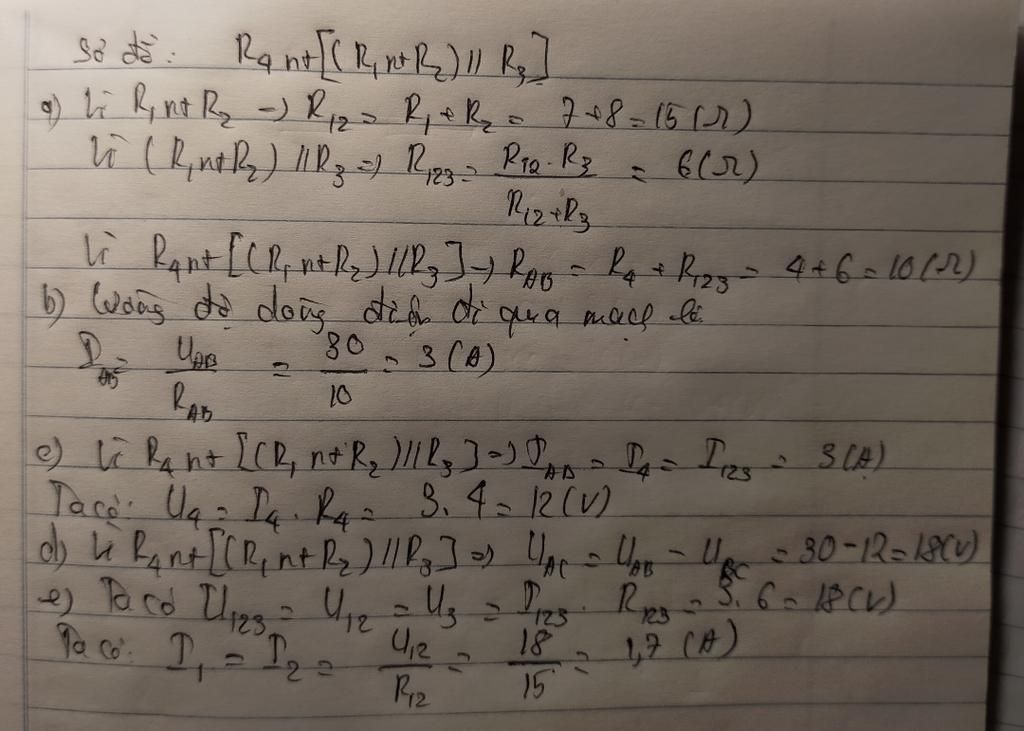 Sơ đồ: R₄ nt [(R₁ nt R₂) // R₃]
a) Vì R₁ nt R₂ → R₁₂ = R₁ + R₂ = 7 + 8 = 15 (Ω)
Vì (R₁ nt R₂) // R₃ => R₁₂₃ = (R₁₂ . R₃) / (R₁₂ + R₃) = 6 (Ω)
Vì R₄ nt [(R₁ nt R₂) // R₃] → R_AB = R₄ + R₁₂₃ = 4 + 6 = 10 (Ω)
b) Cường độ dòng điện đi qua mạch là
I_AB = U_AB / R_AB = 30 / 10 = 3 (A)
c) Vì R₄ nt [(R₁ nt R₂) // R₃] => I_AB = I₄ = I₁₂₃ = 3 (A)
Ta có: U₄ = I₄ . R₄ = 3 . 4 = 12 (V)
d) Vì R₄ nt [(R₁ nt R₂) // R₃] => U_AC = U_AB - U_BC = 30 - 12 = 18 (V)
e) Ta có U₁₂₃ = U₁₂ = U₃ = I₁₂₃ . R₁₂₃ = 3 . 6 = 18 (V)
Ta có: I₁ = I₂ = U₁₂ / R₁₂ = 18 / 15 = 1,7 (A)